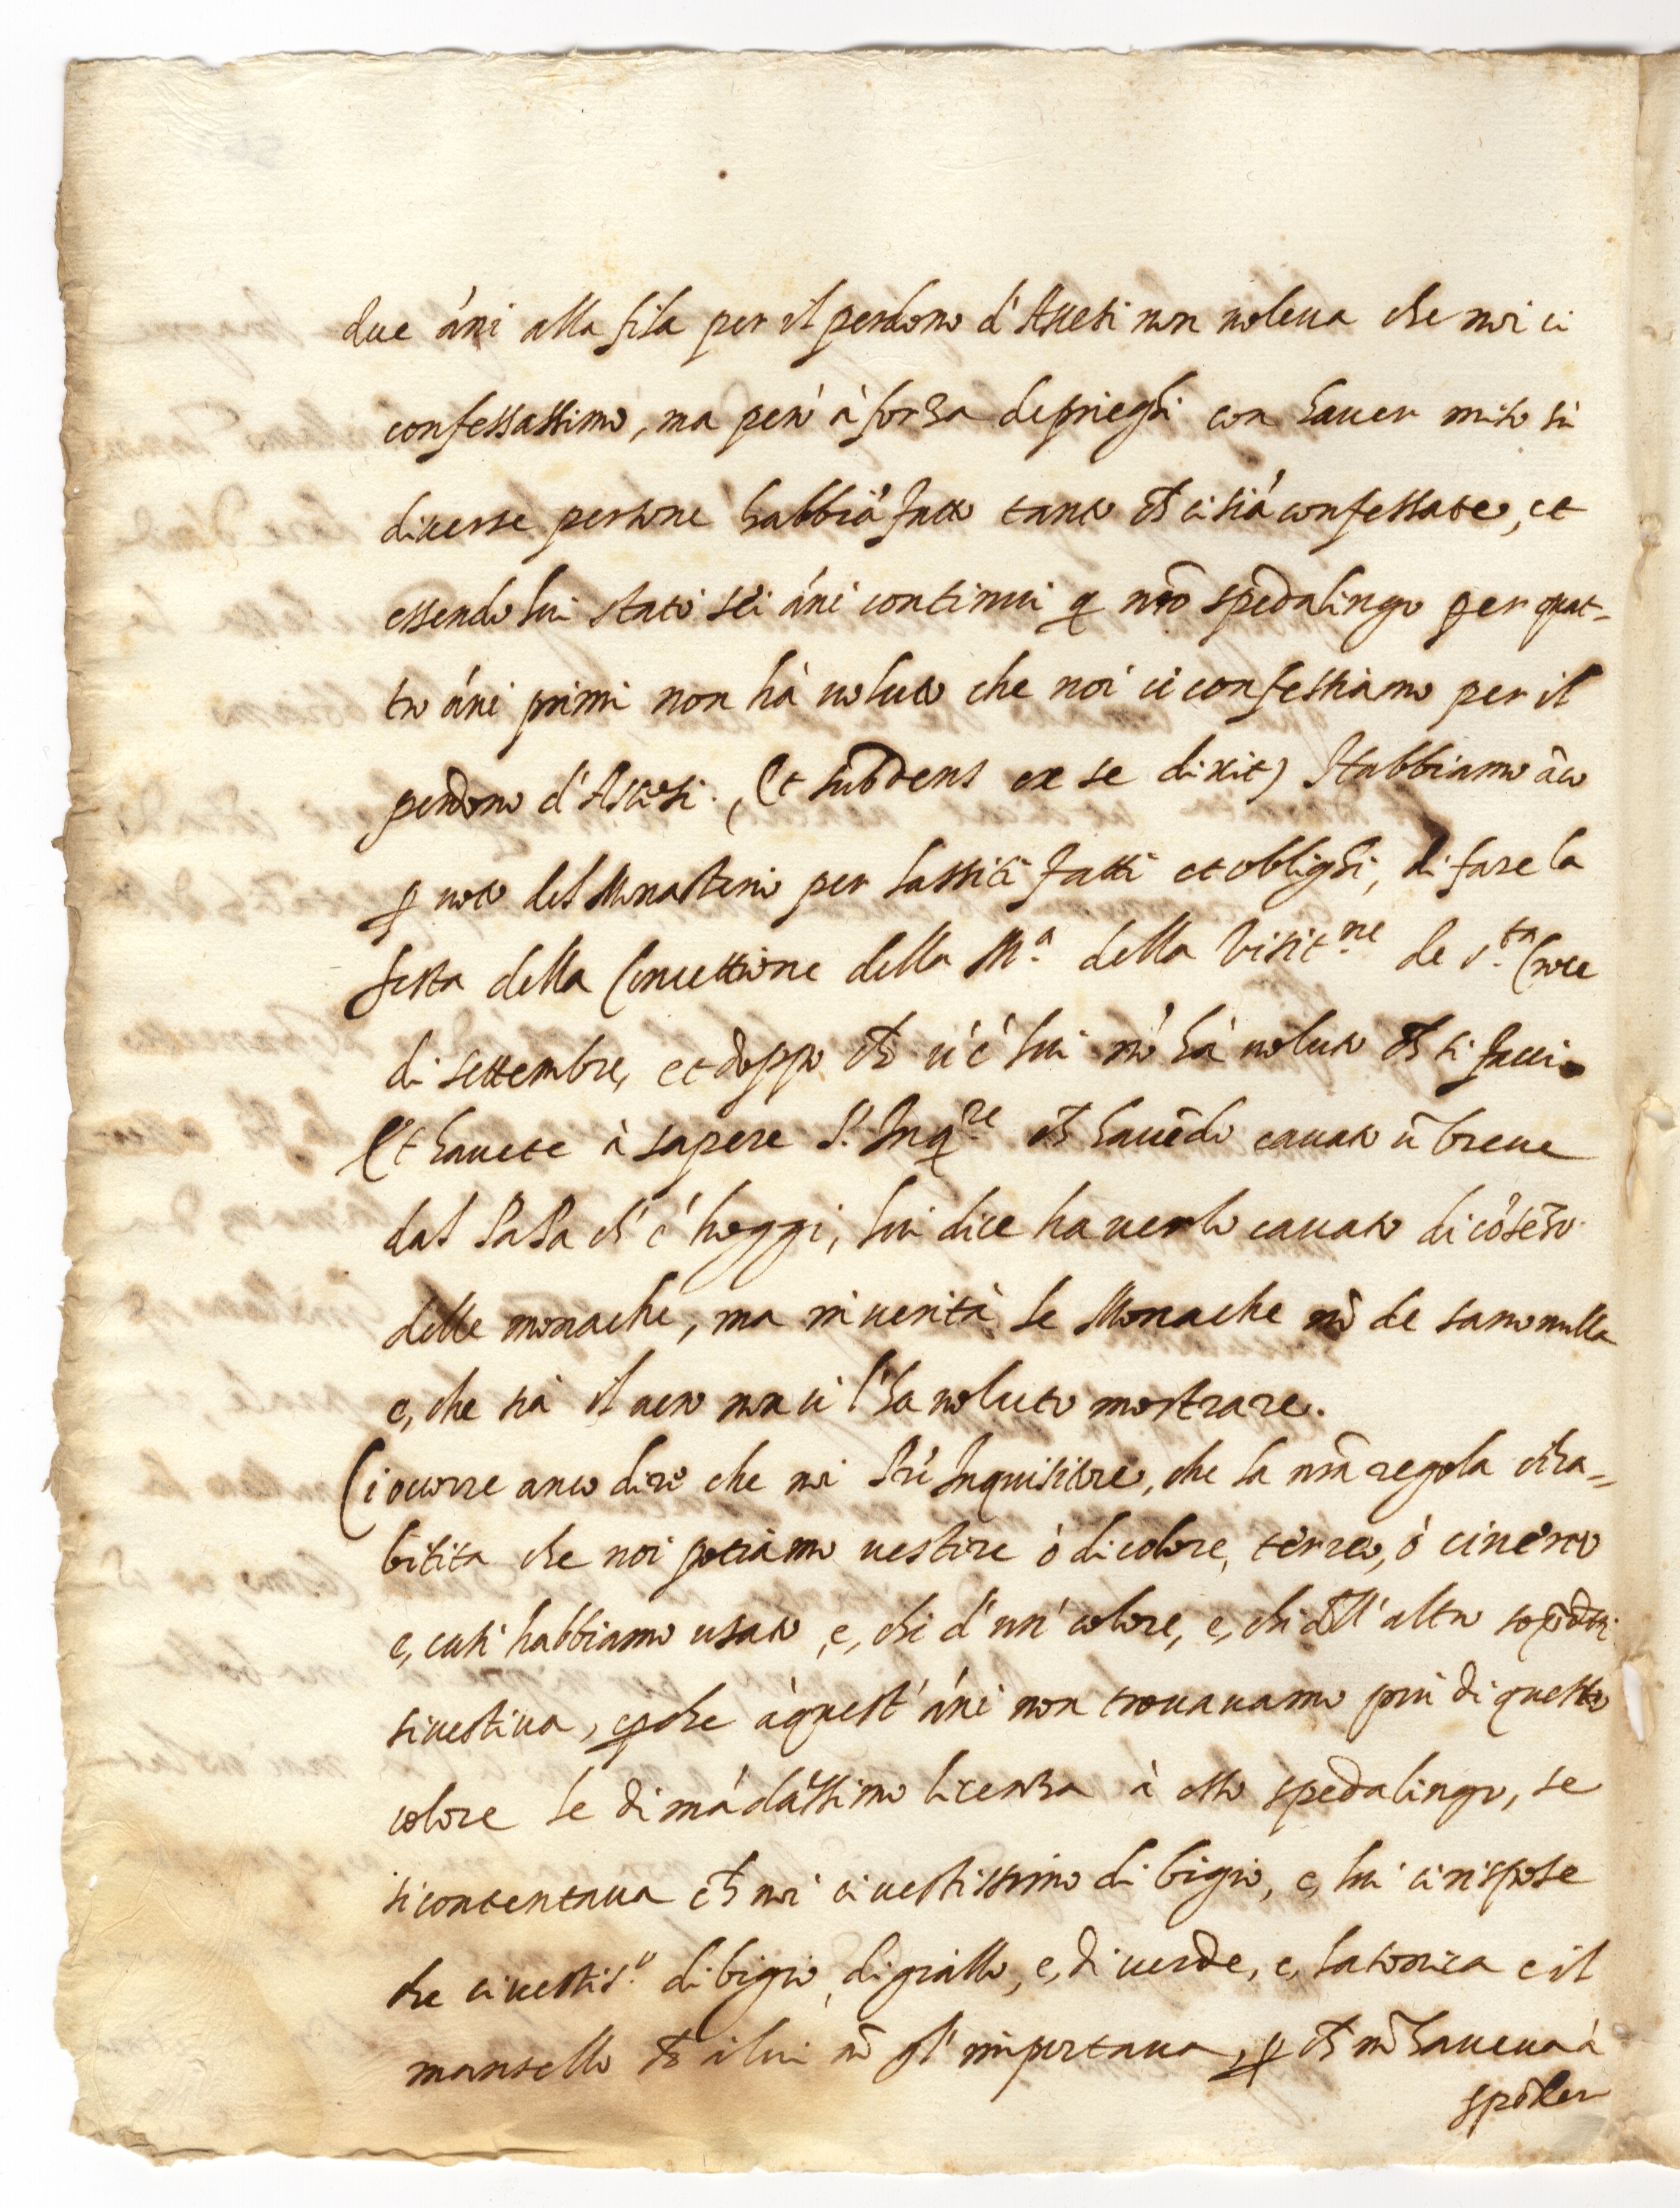 due áni alla fila per il perdono d'Ascesi non voleva che noi ci
confessassimo, ma però à forza de prieghi con haver miso sù
diverse persone habbiā fatto tanto ch̄ ci siā confessate, et
essendo lui stato sei áni continui p nrō spedalingo per quat-
tro áni primi non hà voluto che noi ci confessiamo per il
perdono d'Ascesi. (Et subdens ex se dixit) Habbiamo āco
p voto del Monasterio per lassiti fatti et oblighi, di fare la
festa della Concettione della M.a della Visit.ne de S.ta Croce
di settembre, et doppo ch̄ v'è lui nō hà voluto ch̄ si facci
Et havete à sapere P. Inq.re ch̄ havēdo cavato ū breve
dal PaPa ch'è hoggi, lui dice haverlo cavato di cōsēso
delle monache, ma in verità le Monache nō de sano nulla
e, che sia il vero non ci l'ha voluto mostrare.
Ci ocorre anco dire che noi Prē Inquisitore, che la nrā regola ci ha-
bilita che noi potiamo vestire ò di colore, terreo, ò cinereo
e, cusì habbiamo usato, e, chi d'un' colore, e, chi dell' altro
si vestiva, e pche à quest' áni non trovavamo più di questo
colore le dimādassimo licenza à esso spedalingo, se
si contentava ch̄ noi ci vestissimo di bigio, e, lui ci rispose
che ci vestis.o di bigio, di giallo, e, di verde, e, la tonica e il
mantello ch̄ à lui nō gl' importava, p ch̄ nō haveva à
spēder